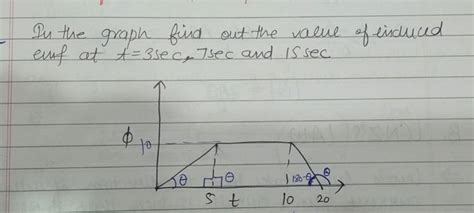 In the graph find out the value of induced
emf at t=3sec, 7sec and 15sec
ϕ 10
θ θ 180-θ θ
5 t 10 20